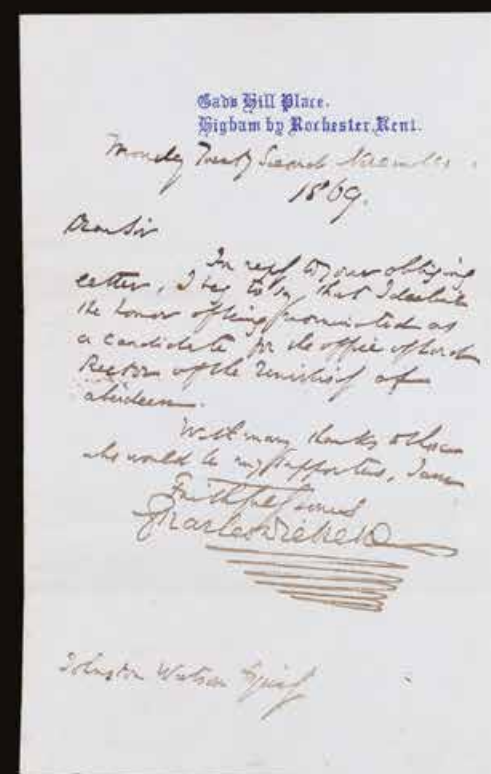 Gads Hill Place.
Higham by Rochester, Kent.
Monday Twenty Second November
1869.
Dear Sir
In reply to your obliging
letter, I beg to say that I decline
the honor of being nominated as
a candidate for the office of Lord
Rector of the University of
Aberdeen.
With many thanks to those
who would be my supporters, I am
Faithfully yours
Charles Dickens
Johnston Watson Esquire